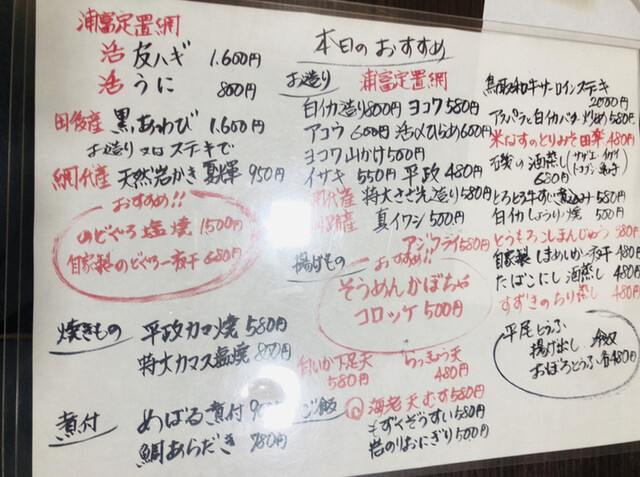 浦富定置網
活 友ハギ 1.600円
活 うに 800円
田後産 黒あわび 1.600円
お造り又はステキで
網代産 天然岩かき 夏輝 950円
おすすめ!!
のどぐろ塩焼 1500円
自家製のどぐろ一夜干 680円
焼きもの 平政カマ焼 580円
特大カマス塩焼 800円
煮付 めばる煮付
鯛あらだき 780円
本日のおすすめ
お造り 浦富定置網
白イカ造り800円 ヨコワ580円
アコウ 600円 活〆ひらめ600円
ヨコワ山かけ500円
イサキ 550円 平政 480円
網代産 特大さざえ造り580円
真イワシ 500円
アジフライ580円
揚げもの おすすめ!!
そうめんかぼちゃ
コロッケ 500円
白いか下足天 580円
らっきょう天 480円
ご飯 海老天むす580円
もずくぞうすい580円
岩のりおにぎり500円
鳥取和牛サーロインステキ
2000円
アスパラと白イカバター炒め580円
米なすのとりみそ田楽
の酒蒸し
680円
とろとろ牛すじ煮込み 580円
白イカしょうゆ焼 500円
とうもろこしまんじゅう 380円
自家製 しまめいか一夜干 480円
たばこにし 酒蒸し 480円
すずきのちり蒸し 480円
平尾とうふ
揚げ出し
おぼろとうふ各480円